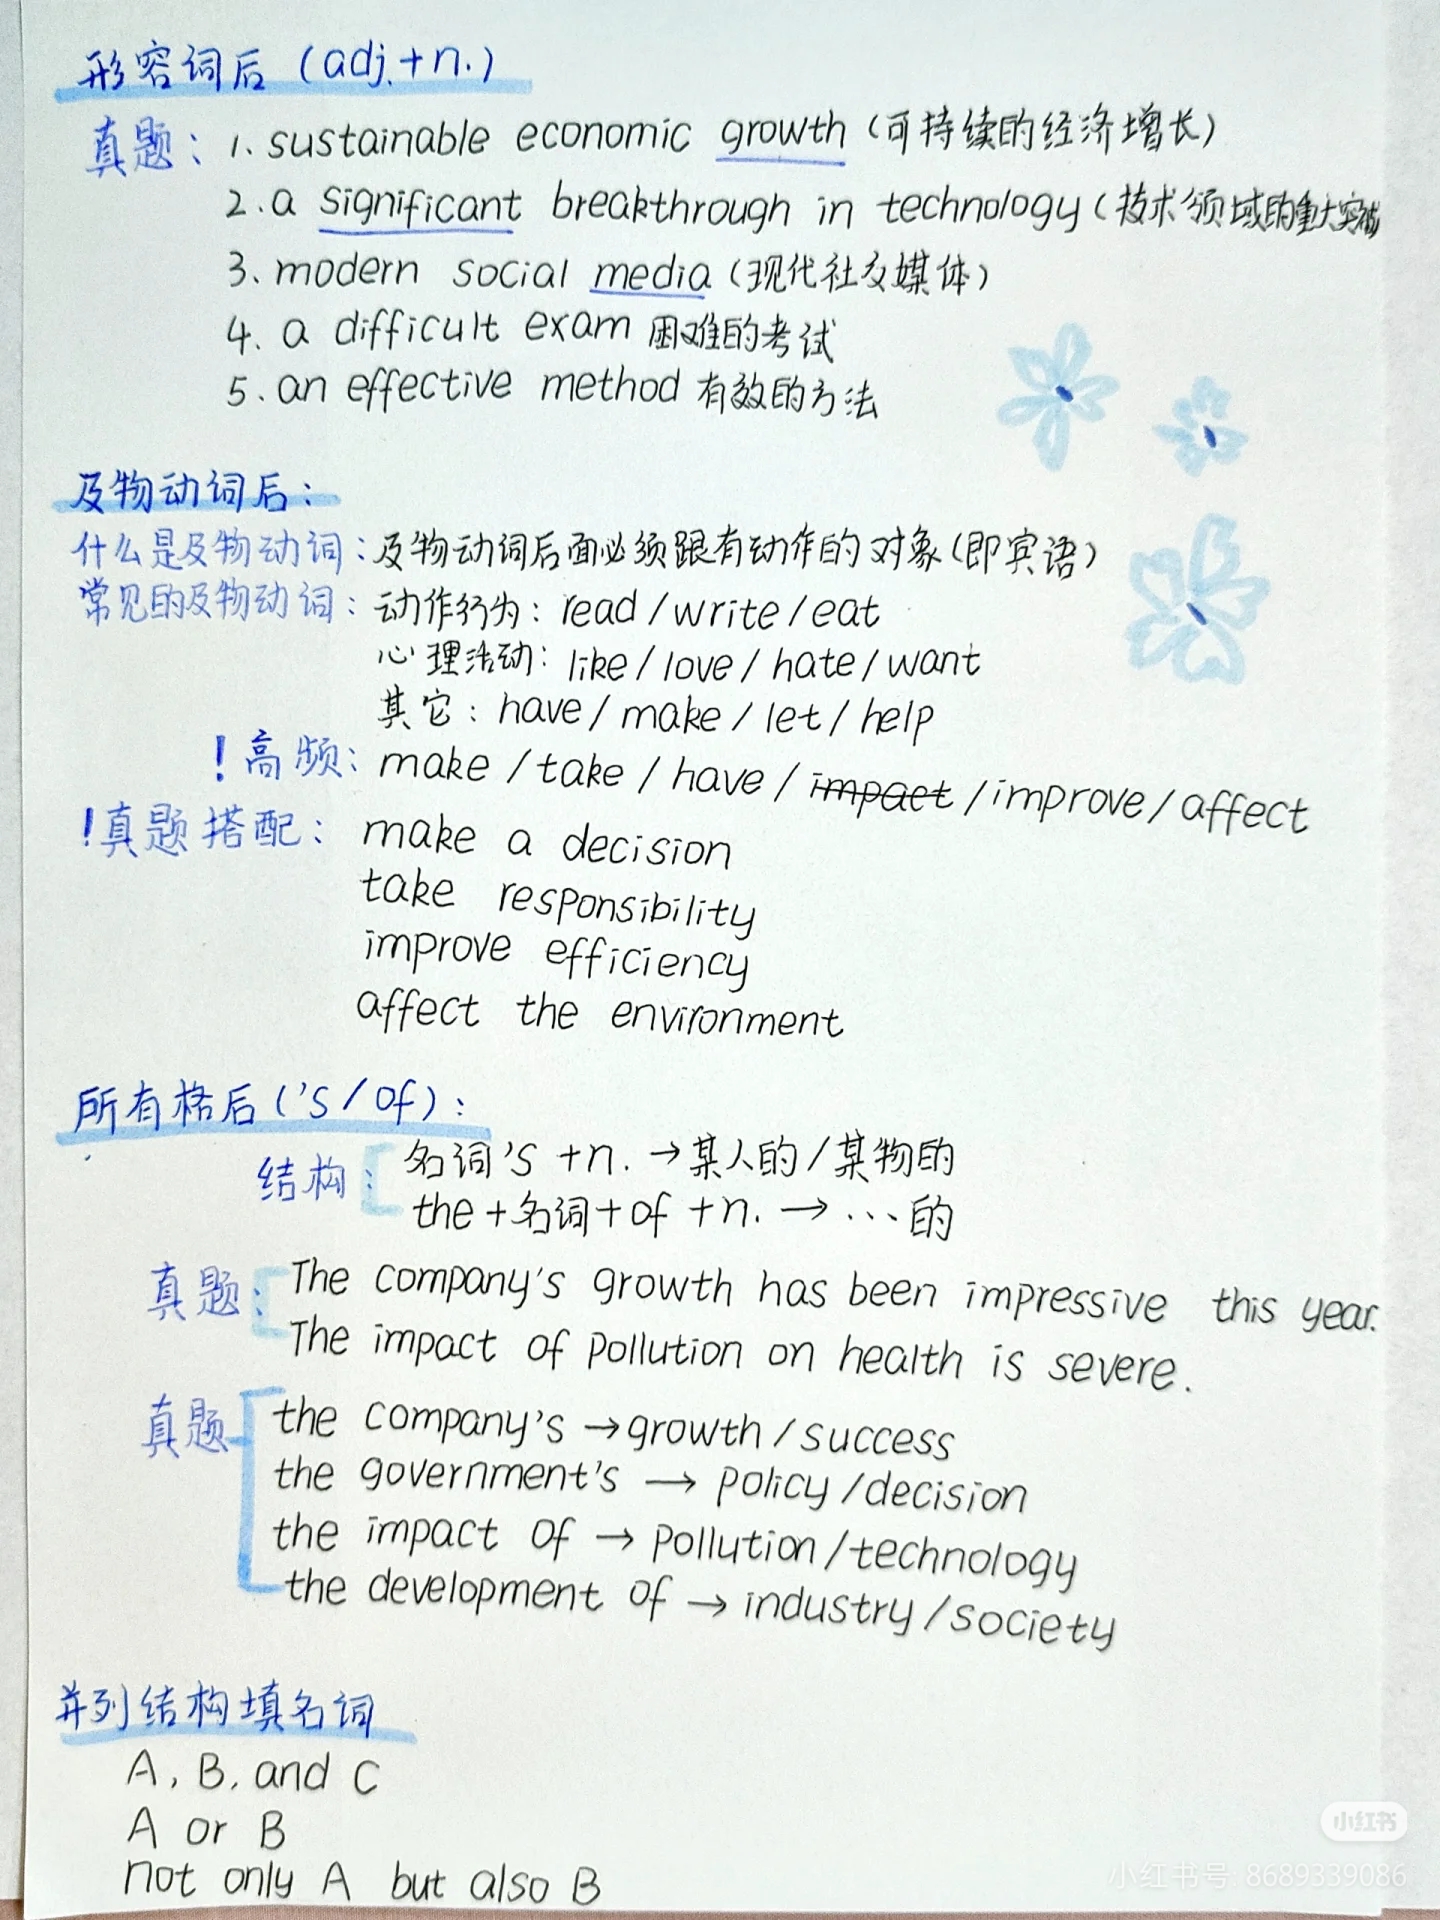 形容词后（adj.+n.）
真题：1.sustainable economic growth（可持续的经济增长）
2.a significant breakthrough in technology（技术领域的重大突破
3.modern social media（现代社交媒体）
4.a difficult exam 困难的考试
5.an effective method 有效的方法
及物动词后：
什么是及物动词：及物动词后面必须跟有动作的对象（即宾语）
常见的及物动词：动作行为：read/write/eat
心理活动：like/love/hate/want
其它：have/make/let/help
!高频：make/take/have/impact/improve/affect
!真题搭配：make a decision
take responsibility
improve efficiency
affect the environment
所有格后（'s/of）：
结构：名词's +n.→某人的/某物的
the+名词+of +n.→…的
真题：The company's growth has been impressive this year.
The impact of pollution on health is severe.
真题 the company's→growth/success
the government's→policy/decision
the impact of→pollution/technology
the development of→industry/society
并列结构填名词
A, B, and C
A or B
not only A but also B
小红书
小红书号: 8689339086